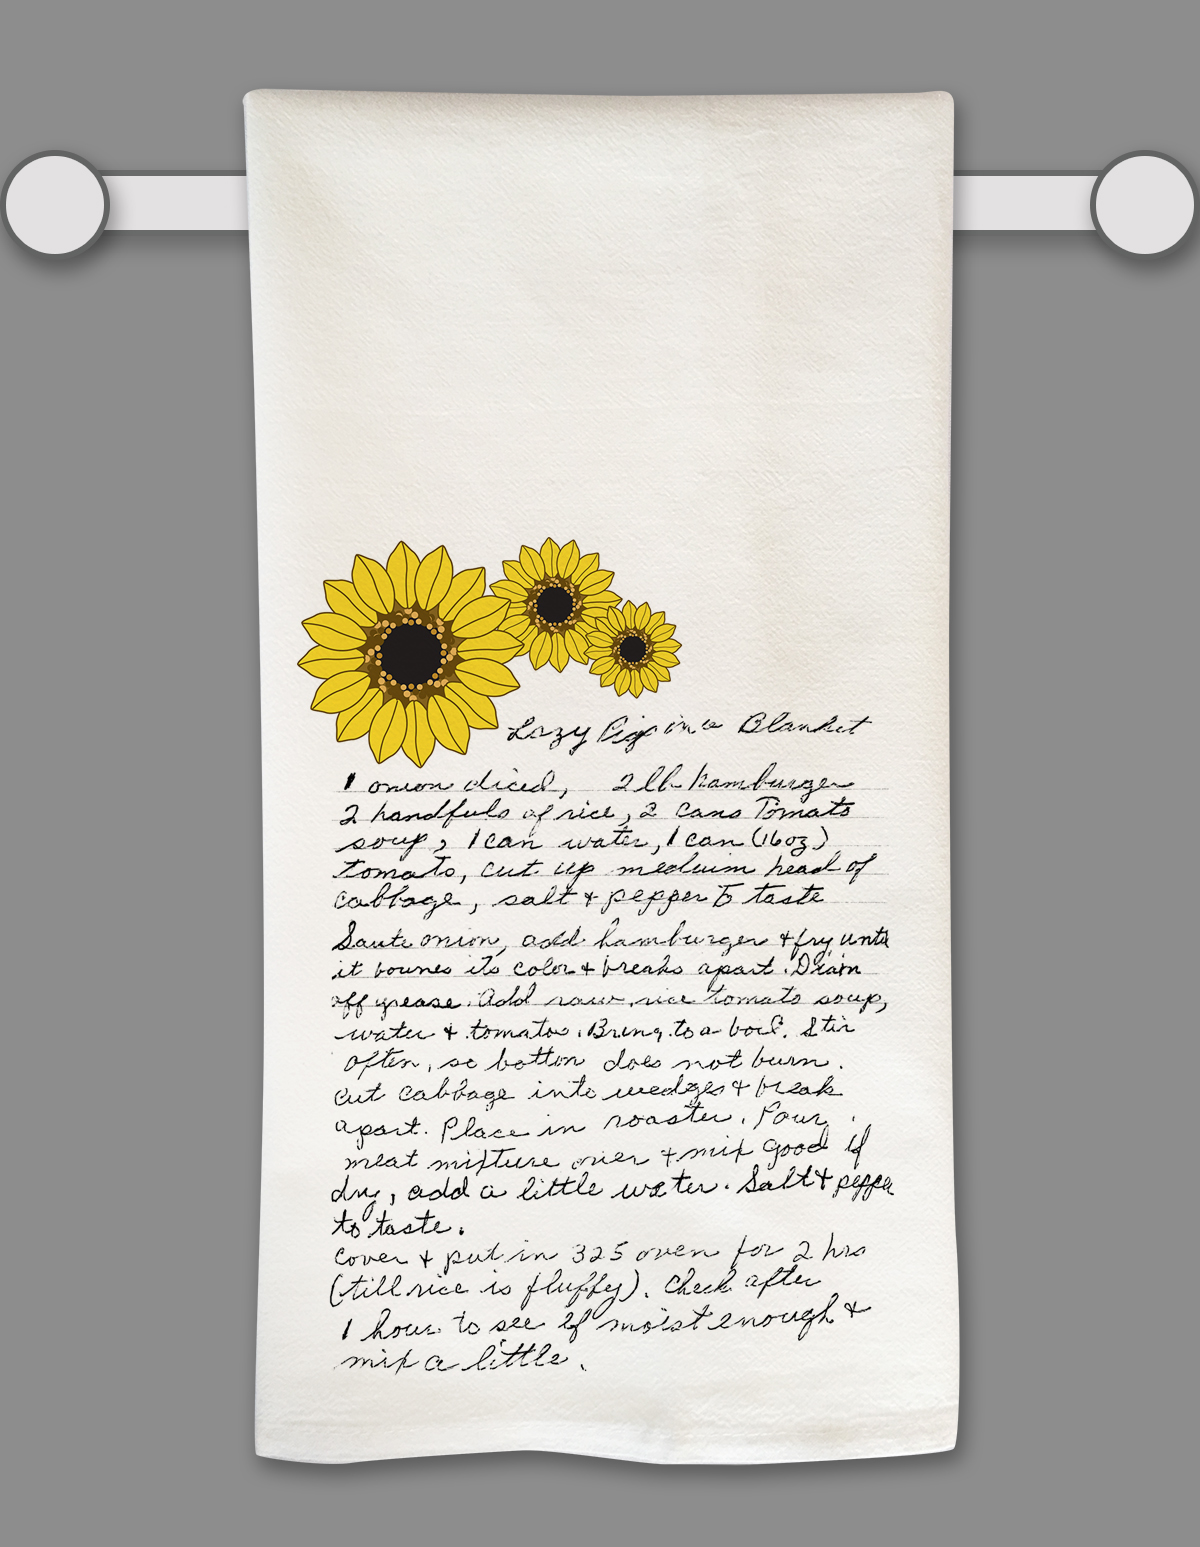 Lazy Pigs in a Blanket
1 onion diced, 2 lb hamburger
2 handfuls of rice, 2 cans Tomato
soup, 1 can water, 1 can (16oz)
tomato, cut up meduim head of
cabbage, salt & pepper to taste
Saute onion, add hamburger & fry until
it bournes its color & breaks apart. Drain
off grease. Add raw rice tomato soup,
water & tomatos. Bring to a boil. Stir
often, so bottom does not burn.
cut cabbage into wedges & break
apart. Place in roaster. Pour
meat mixture over & mix good if
dry, add a little water. Salt & pepper
to taste.
cover & put in 325 oven for 2 hrs
(till rice is fluffy). Check after
1 hour to see if moist enough &
mix a little.